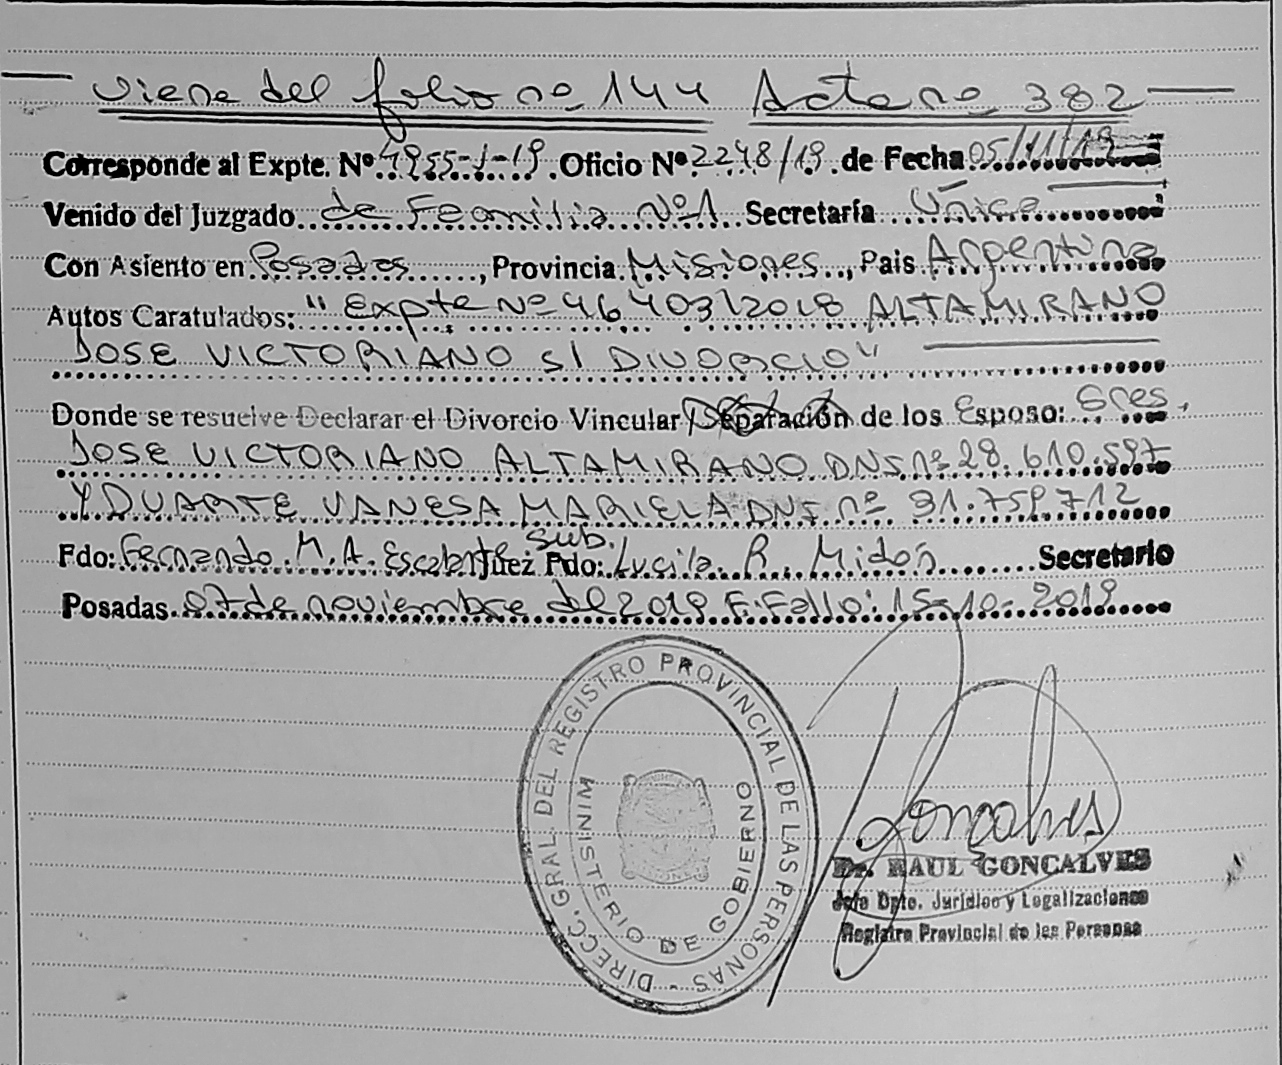 Viene del folio nº 144 Acta nº 382
Corresponde al Expte. Nº 4955-J-19. Oficio Nº 2248/19 de Fecha 05/11/19
Venido del Juzgado de Familia Nº 1 Secretaría Única
Con Asiento en Posadas, Provincia Misiones, Pais Argentina
Autos Caratulados: "Expte Nº 46403/2018 ALTAMIRANO
JOSE VICTORIANO S/ DIVORCIO"
Donde se resuelve Declarar el Divorcio Vincular / Separación de los Esposo: Sres.
JOSE VICTORIANO ALTAMIRANO DNI nº 28.610.597
Y DUARTE VANESA MARIELA DNI nº 31.759.712
Fdo: Fernando M.A. Escalante Juez Sub. Fdo: Lucila R. Midon Secretario
Posadas 07 de noviembre del 2019 F. Fallo: 15-10-2019
DIRECC. GRAL. DEL REGISTRO PROVINCIAL DE LAS PERSONAS -
MINISTERIO DE GOBIERNO
Goncalves
Dr. RAUL GONCALVES
Jefe Dpto. Jurídico y Legalizaciones
Registro Provincial de las Personas